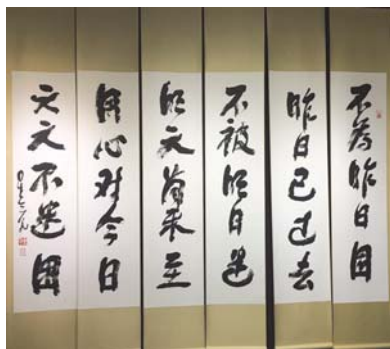 不為昨日困
昨日已过去
不被明日迷
明天尚未至
用心对今日
天天不迷困